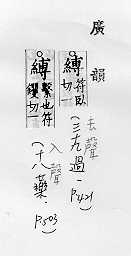 廣韻
縛 符臥切一
去聲
(三十九過.P.421)
縛 繫也符钁切一
入聲
(十八藥.P.503)